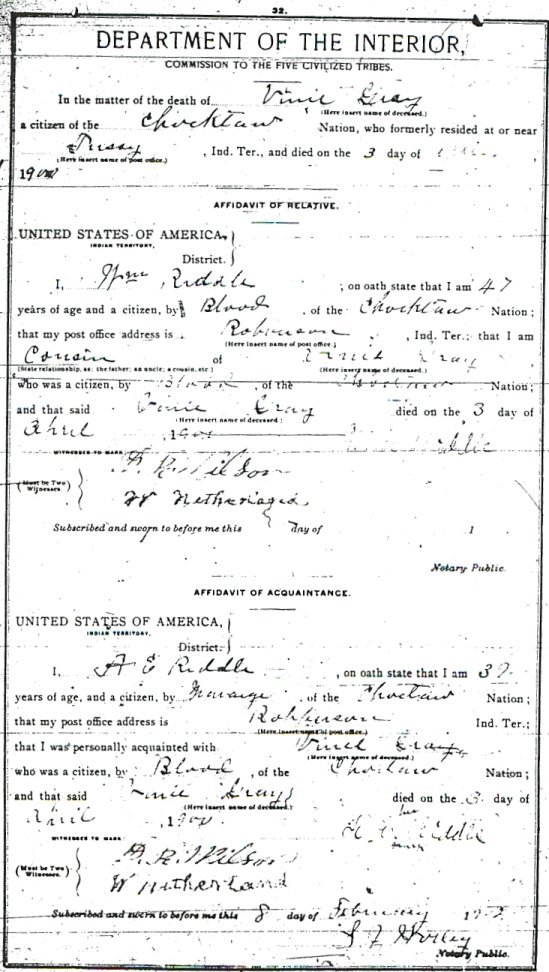 32.
DEPARTMENT OF THE INTERIOR,
COMMISSION TO THE FIVE CIVILIZED TRIBES.
In the matter of the death of Vinie Gray
(Here insert name of deceased.)
a citizen of the Chocktaw Nation, who formerly resided at or near
, Ind. Ter., and died on the 3 day of
(Here insert name of post office.)
1900
AFFIDAVIT OF RELATIVE.
UNITED STATES OF AMERICA,
INDIAN TERRITORY,
District.
I, Wm Riddle ; on oath state that I am 47
years of age and a citizen, by Blood , of the Chocktaw Nation;
that my post office address is , Ind. Ter.; that I am
(Here insert name of post office.)
Cousin of Gray
(State relationship, as: the father; an uncle; a cousin, etc.) (Here insert name of deceased.)
who was a citizen, by Blood , of the Choctaw Nation;
and that said Vinie Gray died on the 3 day of
(Here insert name of deceased:)
April , 190 Riddle
WITNESSES TO MARK:
(Must be Two Witnesses.)
Wilson
W
Subscribed and sworn to before me this day of 1
Notary Public.
AFFIDAVIT OF ACQUAINTANCE.
UNITED STATES OF AMERICA,
INDIAN TERRITORY.
District.
I, A E Riddle , on oath state that I am 3
years of age, and a citizen, by , of the Choctaw Nation;
that my post office address is Ind. Ter.;
(Here insert name of post office.)
that I was personally acquainted with Gray
(Here insert name of deceased.)
who was a citizen, by Blood , of the Choctaw Nation;
and that said Vinie Gray died on the 3 day of
(Here insert name of deceased.)
April , 1900 Riddle
WITNESSES TO MARK:
(Must be Two Witnesses.)
Wilson
W Netherland
Subscribed and sworn to before me this 8 day of February 190
Notary Public.